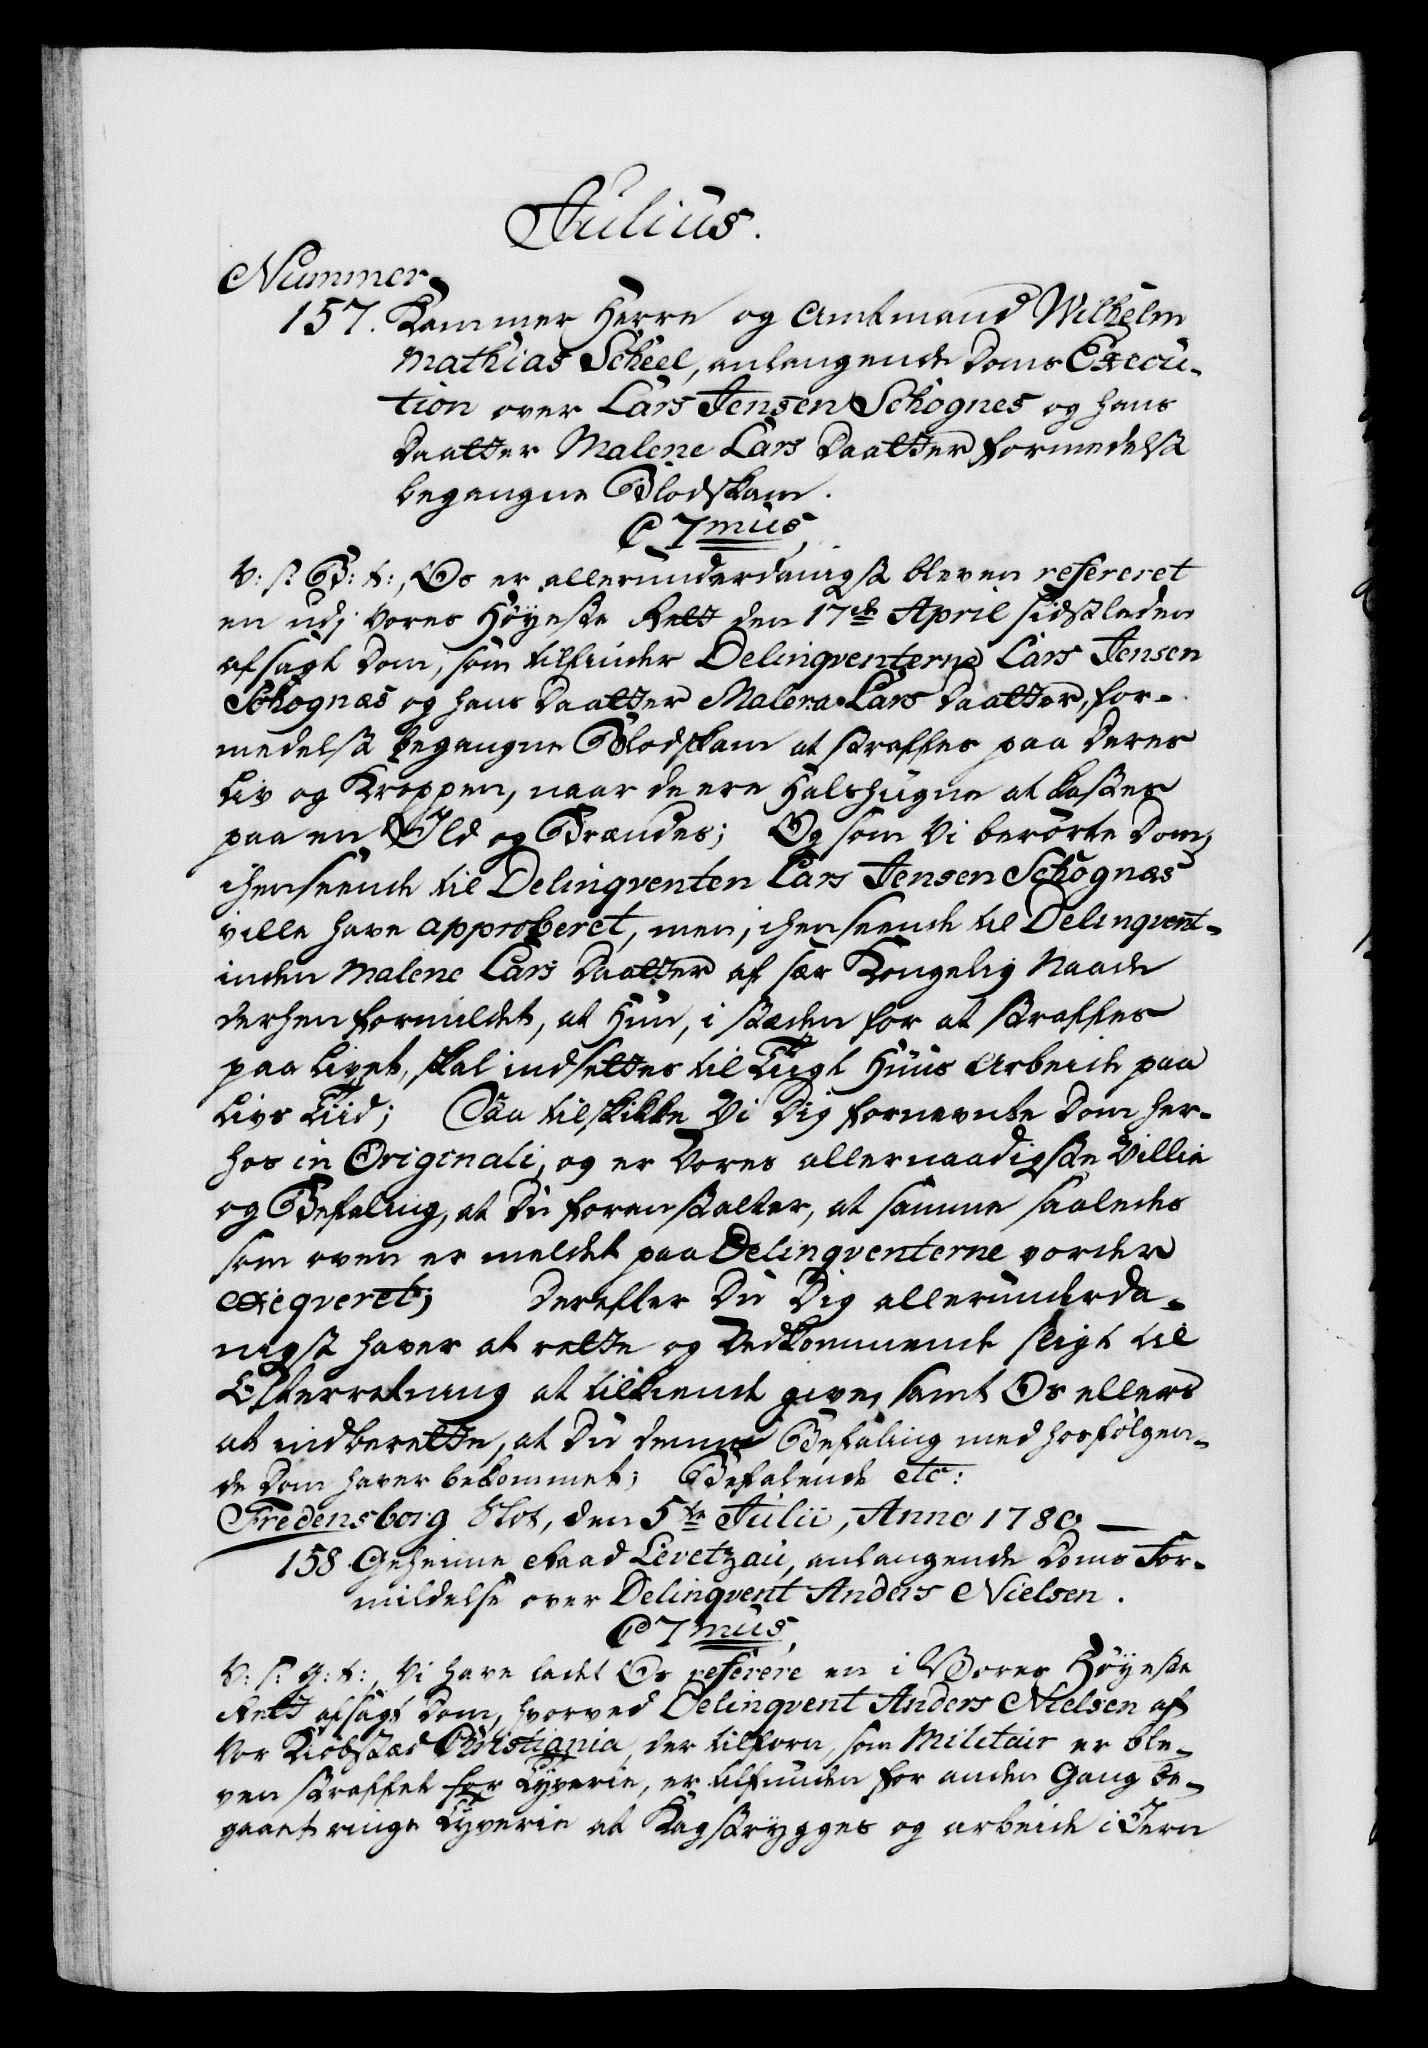 Julius.
Nummer
157. Kammer Herre og Amtmand Wilhelm
Mathias Scheel, anlangende Doms Execu-
tion over Lars Jensen Schognes og hans
Daatter Malene Lars Daatter formedelst
begangne Blodskam.
C 7mus,
V: S: G: T:, Os er allerunderdanigst bleven refereret
en udj Vores Høyeste Rett den 17de April sidstleden
afsagt Dom, som tilfinder Delinqventerne Lars Jensen
Schognæs og hans Daatter Malena Lars Daatter, for-
medelst begangne Blodskam at straffes paa Deres
Liv og Kroppen, naar de ere Halshugne at kastes
paa en Ild og Brændes; Og som Vi berørte Dom,
i henseende til Delinqventen Lars Jensen Schognæs
ville have approberet, men, i henseende til Delinqvent-
inden Malene Lars Daatter af sær Kongelig Naade
derhen formildet, at Hun, i stæden for at straffes
paa Livet, skal indsettes til Tugt Huus Arbeide paa
Livs Tiid; Saa tilskikke Vi Dig fornevnte Dom her-
hos in Originali, og er Vores allernaadigste Villie
og Befaling, at Du foranstalter, at samme saaledes
som oven er meldet paa Delinqventerne vorder
exeqveret; Derefter Du Dig allerunderda-
nigst haver at rette og Vedkommende sligt til
Efterretning at tilkiende give, samt Os ellers
at indberette, at Du denne Befaling med hosfølgen-
de Dom haver bekommet; Befalende etc:
Fredensborg Slot, den 5te Julii, Anno 1780
158 Geheime Raad Levetzau, anlangende Doms For-
mildelse over Delinqvent Anders Nielsen.
C 7mus,
V: S: G: T:, Vi have ladet Os referere en i Vores Høyeste
Rett afsagt Dom, hvorved Delinqvent Anders Nielsen af
Vor Kiøbstæd Christiania, der tilforn, som Militair er ble-
ven straffet for Tyverie, er tilfunden for anden Gang be-
gaaet ringe Tyverie at Kagstrygges og arbeide i Jern